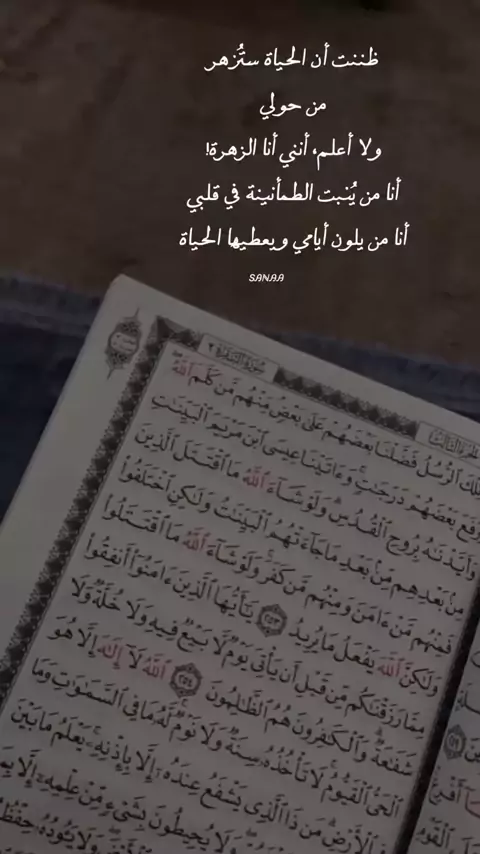 ظننت أن الحياة ستُزهر
من حولي
ولا أعلم، أنني أنا الزهرة!
أنا من يُنبت الطمأنينة في قلبي
أنا من يلون أيامي ويعطيها الحياة
SANAA
سُورَةُ البَقَرَةِ ٢
الجُزءُ الثَّالِثُ
تِلْكَ ٱلرُّسُلُ فَضَّلْنَا بَعْضَهُمْ عَلَىٰ بَعْضٍ مِّنْهُم مَّن كَلَّمَ ٱللَّهُ
وَرَفَعَ بَعْضَهُمْ دَرَجَٰتٍ وَءَاتَيْنَا عِيسَى ٱبْنَ مَرْيَمَ ٱلْبَيِّنَٰتِ
وَأَيَّدْنَٰهُ بِرُوحِ ٱلْقُدُسِ وَلَوْ شَآءَ ٱللَّهُ مَا ٱقْتَتَلَ ٱلَّذِينَ
مِنۢ بَعْدِهِم مِّنۢ بَعْدِ مَا جَآءَتْهُمُ ٱلْبَيِّنَٰتُ وَلَٰكِنِ ٱخْتَلَفُوا۟
فَمِنْهُم مَّنْ ءَامَنَ وَمِنْهُم مَّن كَفَرَ وَلَوْ شَآءَ ٱللَّهُ مَا ٱقْتَتَلُوا۟
وَلَٰكِنَّ ٱللَّهَ يَفْعَلُ مَا يُرِيدُ ٢٥٣ يَٰٓأَيُّهَا ٱلَّذِينَ ءَامَنُوٓا۟ أَنفِقُوا۟
مِمَّا رَزَقْنَٰكُم مِّن قَبْلِ أَن يَأْتِىَ يَوْمٌ لَّا بَيْعٌ فِيهِ وَلَا خُلَّةٌ وَلَا
شَفَٰعَةٌ وَٱلْكَٰفِرُونَ هُمُ ٱلظَّٰلِمُونَ ٢٥٤ ٱللَّهُ لَآ إِلَٰهَ إِلَّا هُوَ
ٱلْحَىُّ ٱلْقَيُّومُ لَا تَأْخُذُهُۥ سِنَةٌ وَلَا نَوْمٌ لَّهُۥ مَا فِى ٱلسَّمَٰوَٰتِ وَمَا
فِى ٱلْأَرْضِ مَن ذَا ٱلَّذِى يَشْفَعُ عِندَهُۥٓ إِلَّا بِإِذْنِهِۦ يَعْلَمُ مَا بَيْنَ
وَلَا يُحِيطُونَ بِشَىْءٍ مِّنْ عِلْمِهِۦٓ إِلَّا بِمَا
وَلَا يَـُٔودُهُۥ حِفْظُ